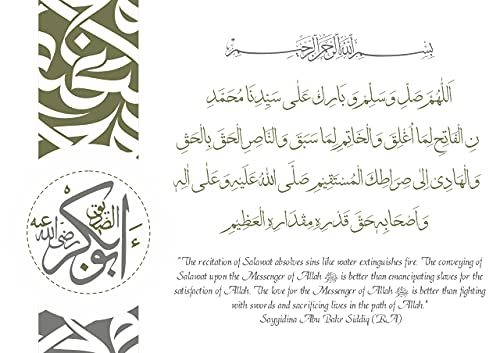 بِسْمِ اللهِ الرَّحْمٰنِ الرَّحِيْمِ
اَللّٰهُمَّ صَلِّ وَسَلِّمْ وَبَارِكْ عَلٰى سَيِّدِنَا مُحَمَّدِ
نِ الْفَاتِحِ لِمَا أُغْلِقَ وَالْخَاتِمِ لِمَا سَبَقَ وَالنَّاصِرِ الْحَقِّ بِالْحَقِّ
وَالْهَادِىْ اِلٰى صِرَاطِكَ الْمُسْتَقِيْمِ صَلَّى اللهُ عَلَيْهِ وَعَلٰى اٰلِهِ
وَاَصْحَابِهِ حَقَّ قَدْرِهِ مِقْدَارِهِ الْعَظِيْمِ
أبو بكر الصديق رضي الله عنه
"The recitation of Salawat absolves sins like water extinguishes fire. The conveying of
Salawat upon the Messenger of Allah ﷺ is better than emancipating slaves for the
satisfaction of Allah. The love for the Messenger of Allah ﷺ is better than fighting
with swords and sacrificing lives in the path of Allah."
Sayyidina Abu Bakr Siddiq (R.A)